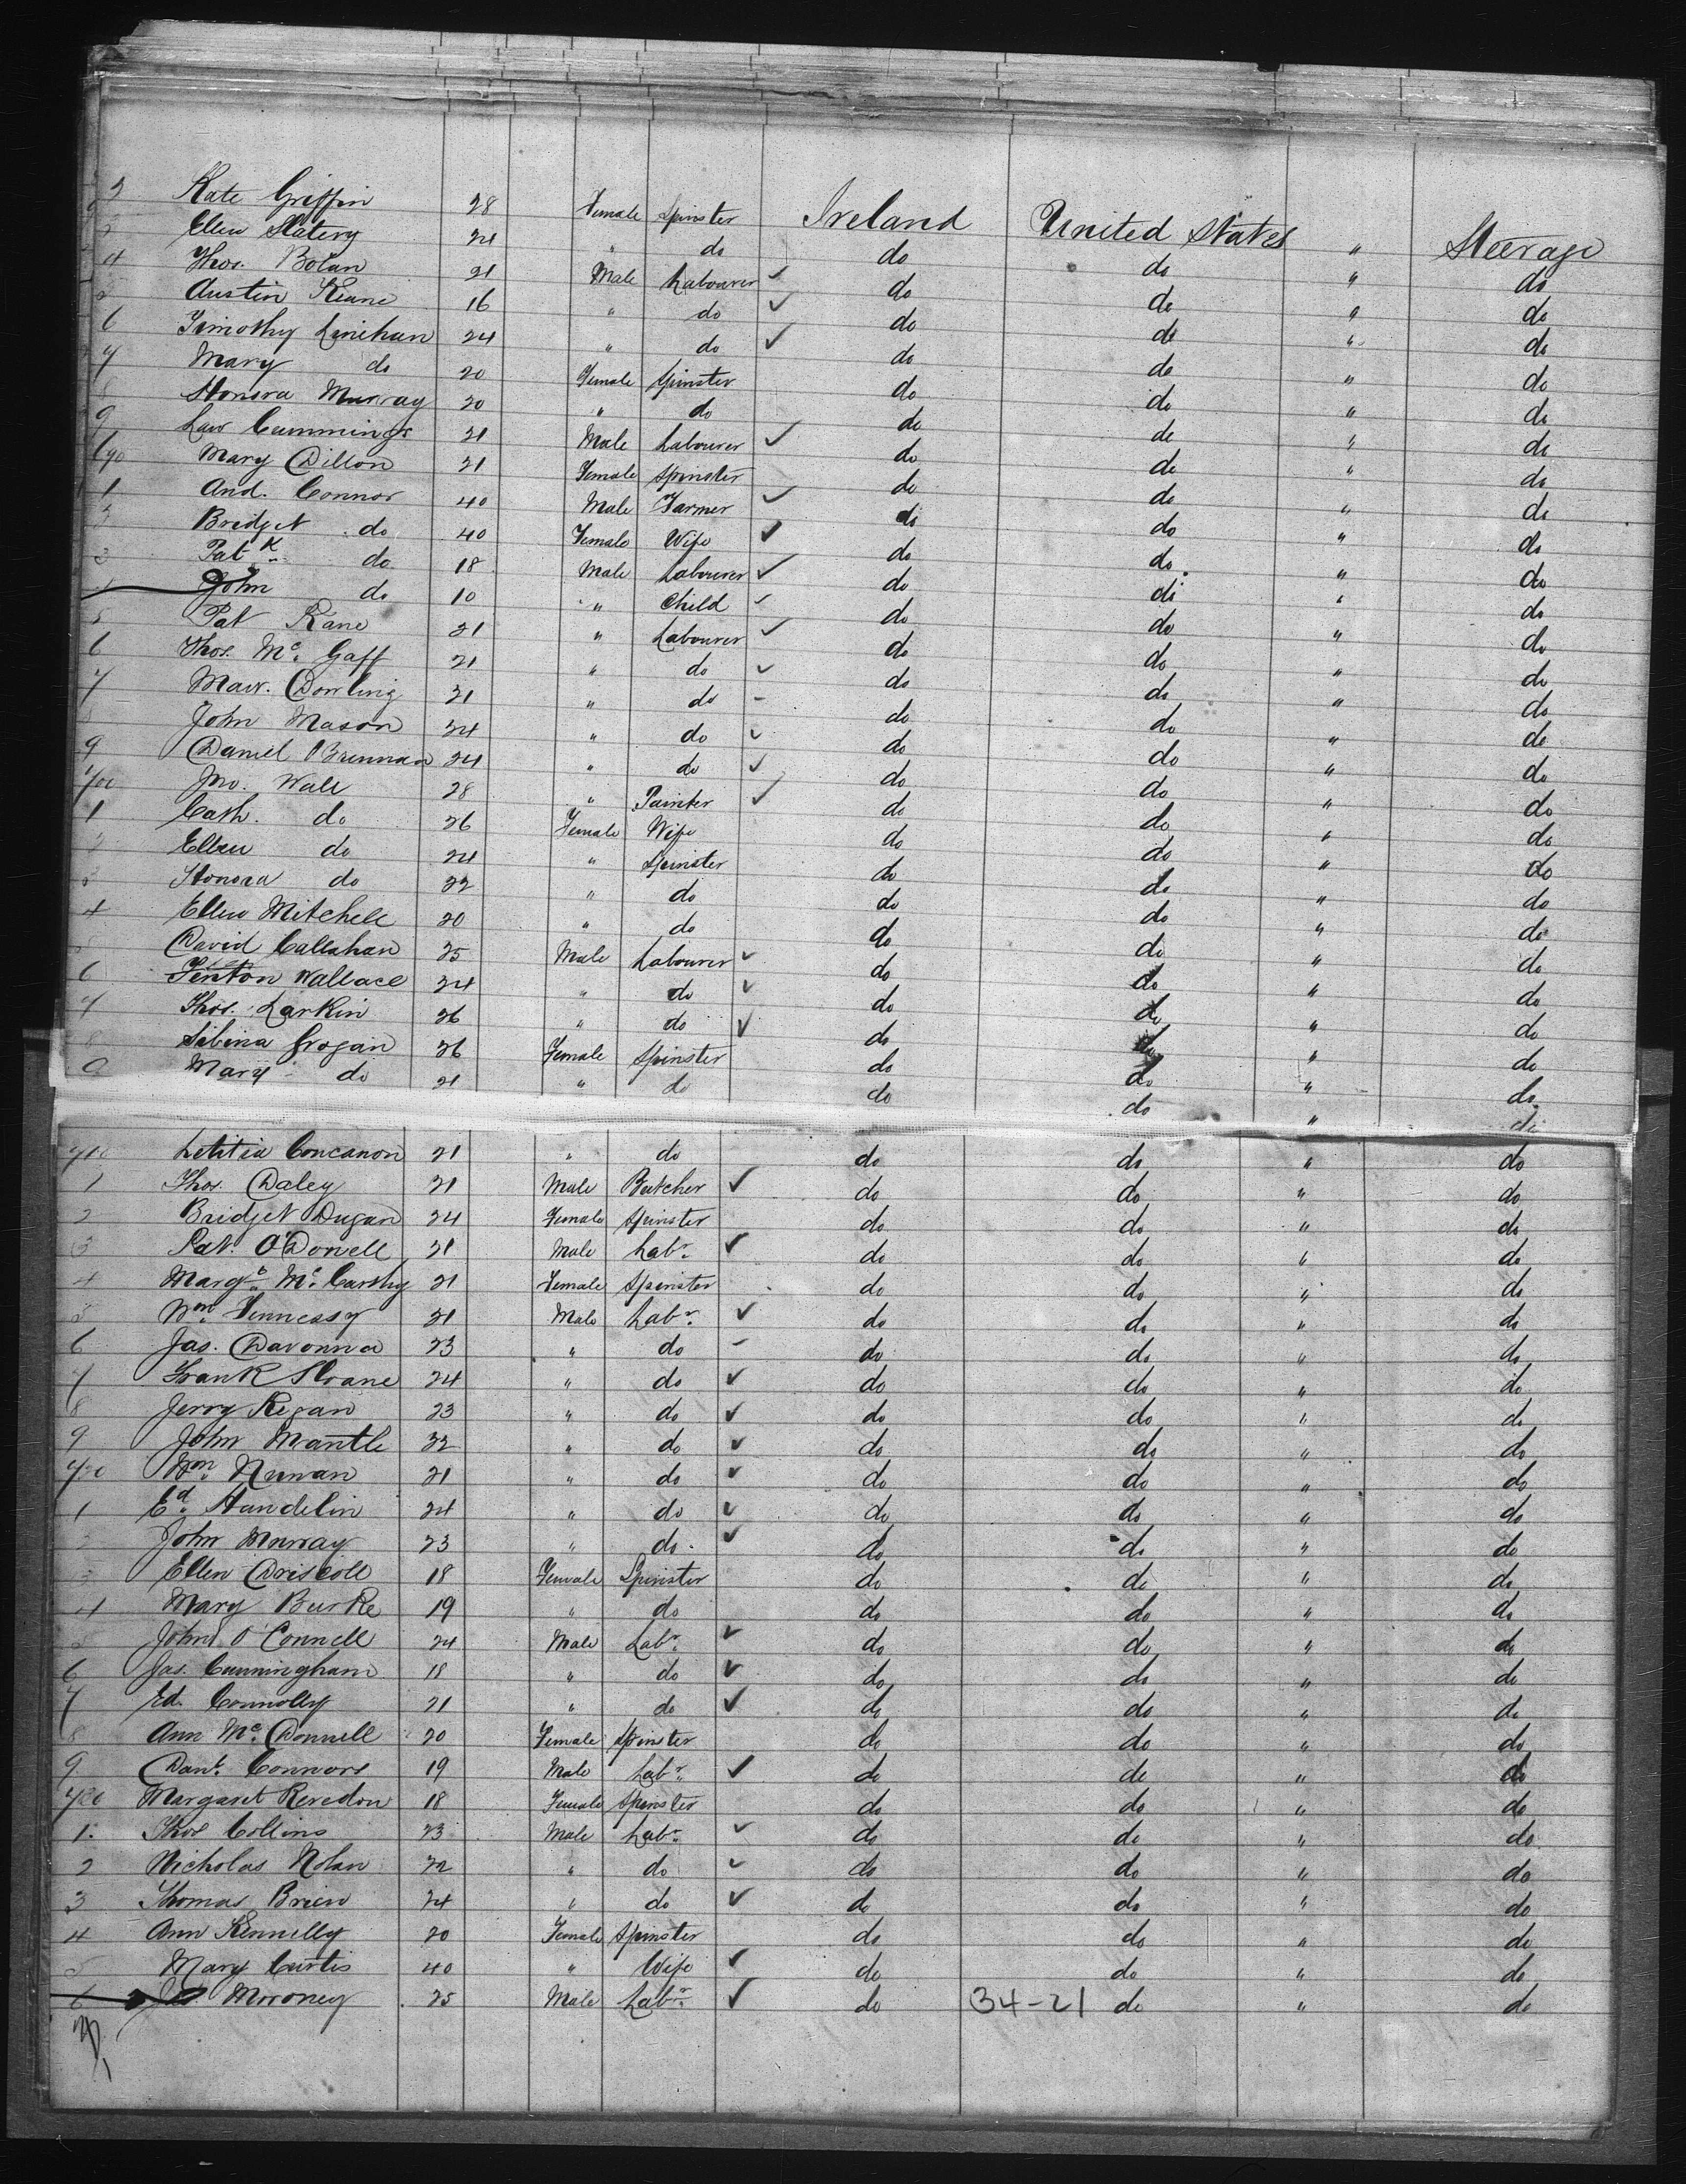 Kate Griffin 28 Female Spinster Ireland United States " Steerage
3 Ellen Slatery 24 " do do do " do
4 Thos. Bolan 21 Male Labourer do do " do
5 Austin Keane 16 " do do do " do
6 Timothy Linehan 24 " do do do " do
7 Mary do 20 Female Spinster do do " do
8 Honora Murray 20 " do do do " do
9 Law Cummings 21 Male Labourer do do " do
Mary Dillon 21 Female Spinster do do " do
1 And. Connor 40 Male Farmer do do " do
Bridget do 40 Female Wife do do " do
3 Patk do 18 Male Labourer do do " do
John do 10 " Child do do " do
5 Pat Kane 21 " Labourer do do " do
6 Thos. Mc. Gaff 21 " do do do " do
7 Maur. Dowling 21 " do do do " do
John Mason 24 " do do do " do
9 Daniel O'Brennan 24 " do do do " do
Jno. Wale 28 " Painter do do " do
1 Cath. do 26 Female Wife do do " do
2 Ellen do 24 " Spinster do do " do
3 Honora do 22 " do do do " do
4 Ellen Mitchell 20 " do do do " do
5 David Callahan 25 Male Labourer do do " do
6 Fenton Wallace 24 " do do do " do
7 Thos. Larkin 26 " do do do " do
8 Sibina Grogan 26 Female Spinster do do " do
9 Mary do 21 " do do do " do
710 Letitia Concanon 21 " do do do " do
1 Thos. Daley 21 Male Butcher do do " do
2 Bridget Dugan 24 Female Spinster do do " do
3 Pat. O'Donell 21 Male Labr. do do " do
4 Margt. Mc. Carthy 21 Female Spinster do do " do
5 Wm. Hennessy 21 Male Labr. do do " do
6 Jas. Davonna 23 " do do do " do
7 Frank Sloane 24 " do do do " do
8 Jerry Regan 23 " do do do " do
9 John Mantle 32 " do do do " do
720 Wm. Nunan 21 " do do do " do
1 Ed. Handelin 24 " do do do " do
2 John Murray 23 " do. do do " do
3 Ellen Driscoll 18 Female Spinster do do " do
4 Mary Burke 19 " do do do " do
5 John O'Connell 24 Male Labr. do do " do
6 Jas. Cunningham 18 " do do do " do
7 Ed. Connolly 21 " do do do " do
8 Ann Mc. Donnell 20 Female Spinster do do " do
9 Danl. Connors 19 Male Labr. do do " do
730 Margaret Reredon 18 Female Spinster do do " do
1. Thos Collins 23 Male Labr. do do " do
2 Nicholas Nolan 22 " do do do " do
3 Thomas Brien 24 " do do do " do
4 Ann Kennelly 20 Female Spinster do do " do
5 Mary Curtis 40 " Wife do do " do
6 Moroney 25 Male Labr. do 34-21 do " do